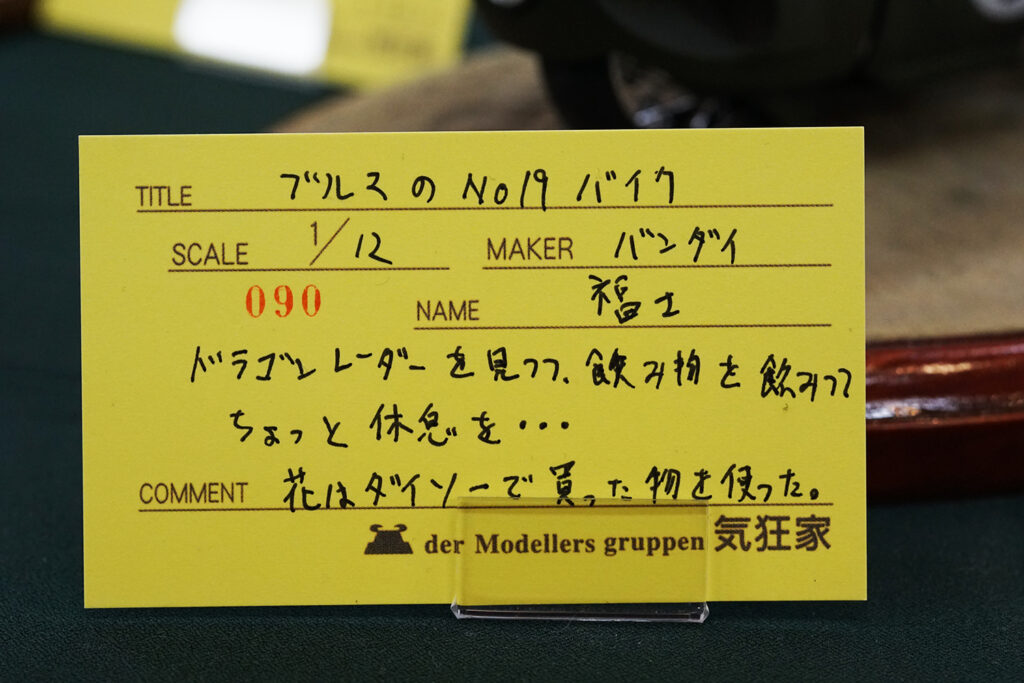 TITLE ブルスのNo19バイク
SCALE 1/12 MAKER バンダイ
090 NAME 福士
ドラゴンレーダーを見つつ、飲み物を飲みつつ
ちょっと休息を・・・
COMMENT 花はダイソーで買った物を使った。
der Modellers gruppen 気狂家